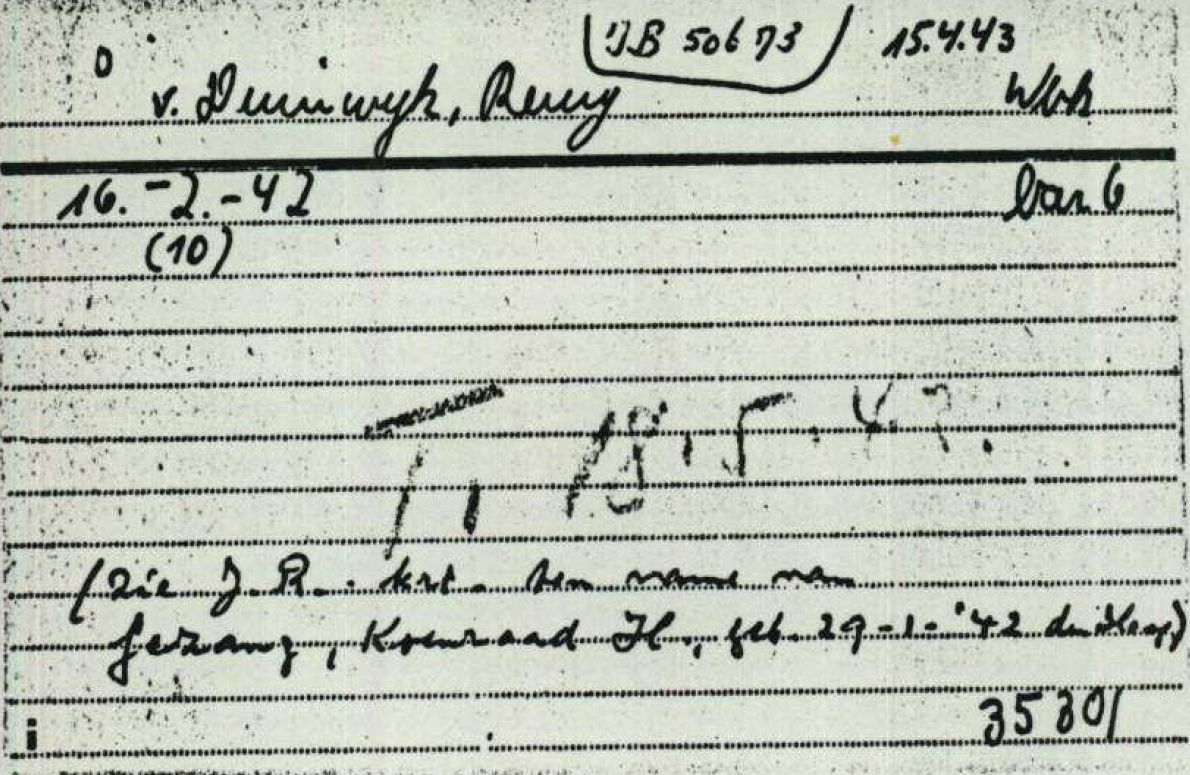 JB 50673 15.4.43
v. Duinwyk, Remy Wbk
16. -2.-42 bar 6
(10)
T. 18.5.43.
(zie J.R. krt. ten name van
Gezang, Koenraad H., geb. 29-1-'42 den Haag)
35301